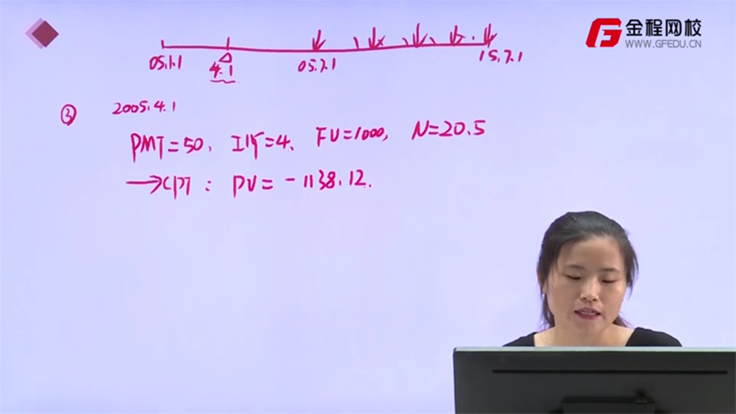 金程网校
WWW.GFEDU.CN
05.1.1 4.1 05.7.1 15.7.1
③ 2005.4.1
PMT=50, I/Y=4, FV=1000, N=20.5
→CPT: PV=-1138.12.